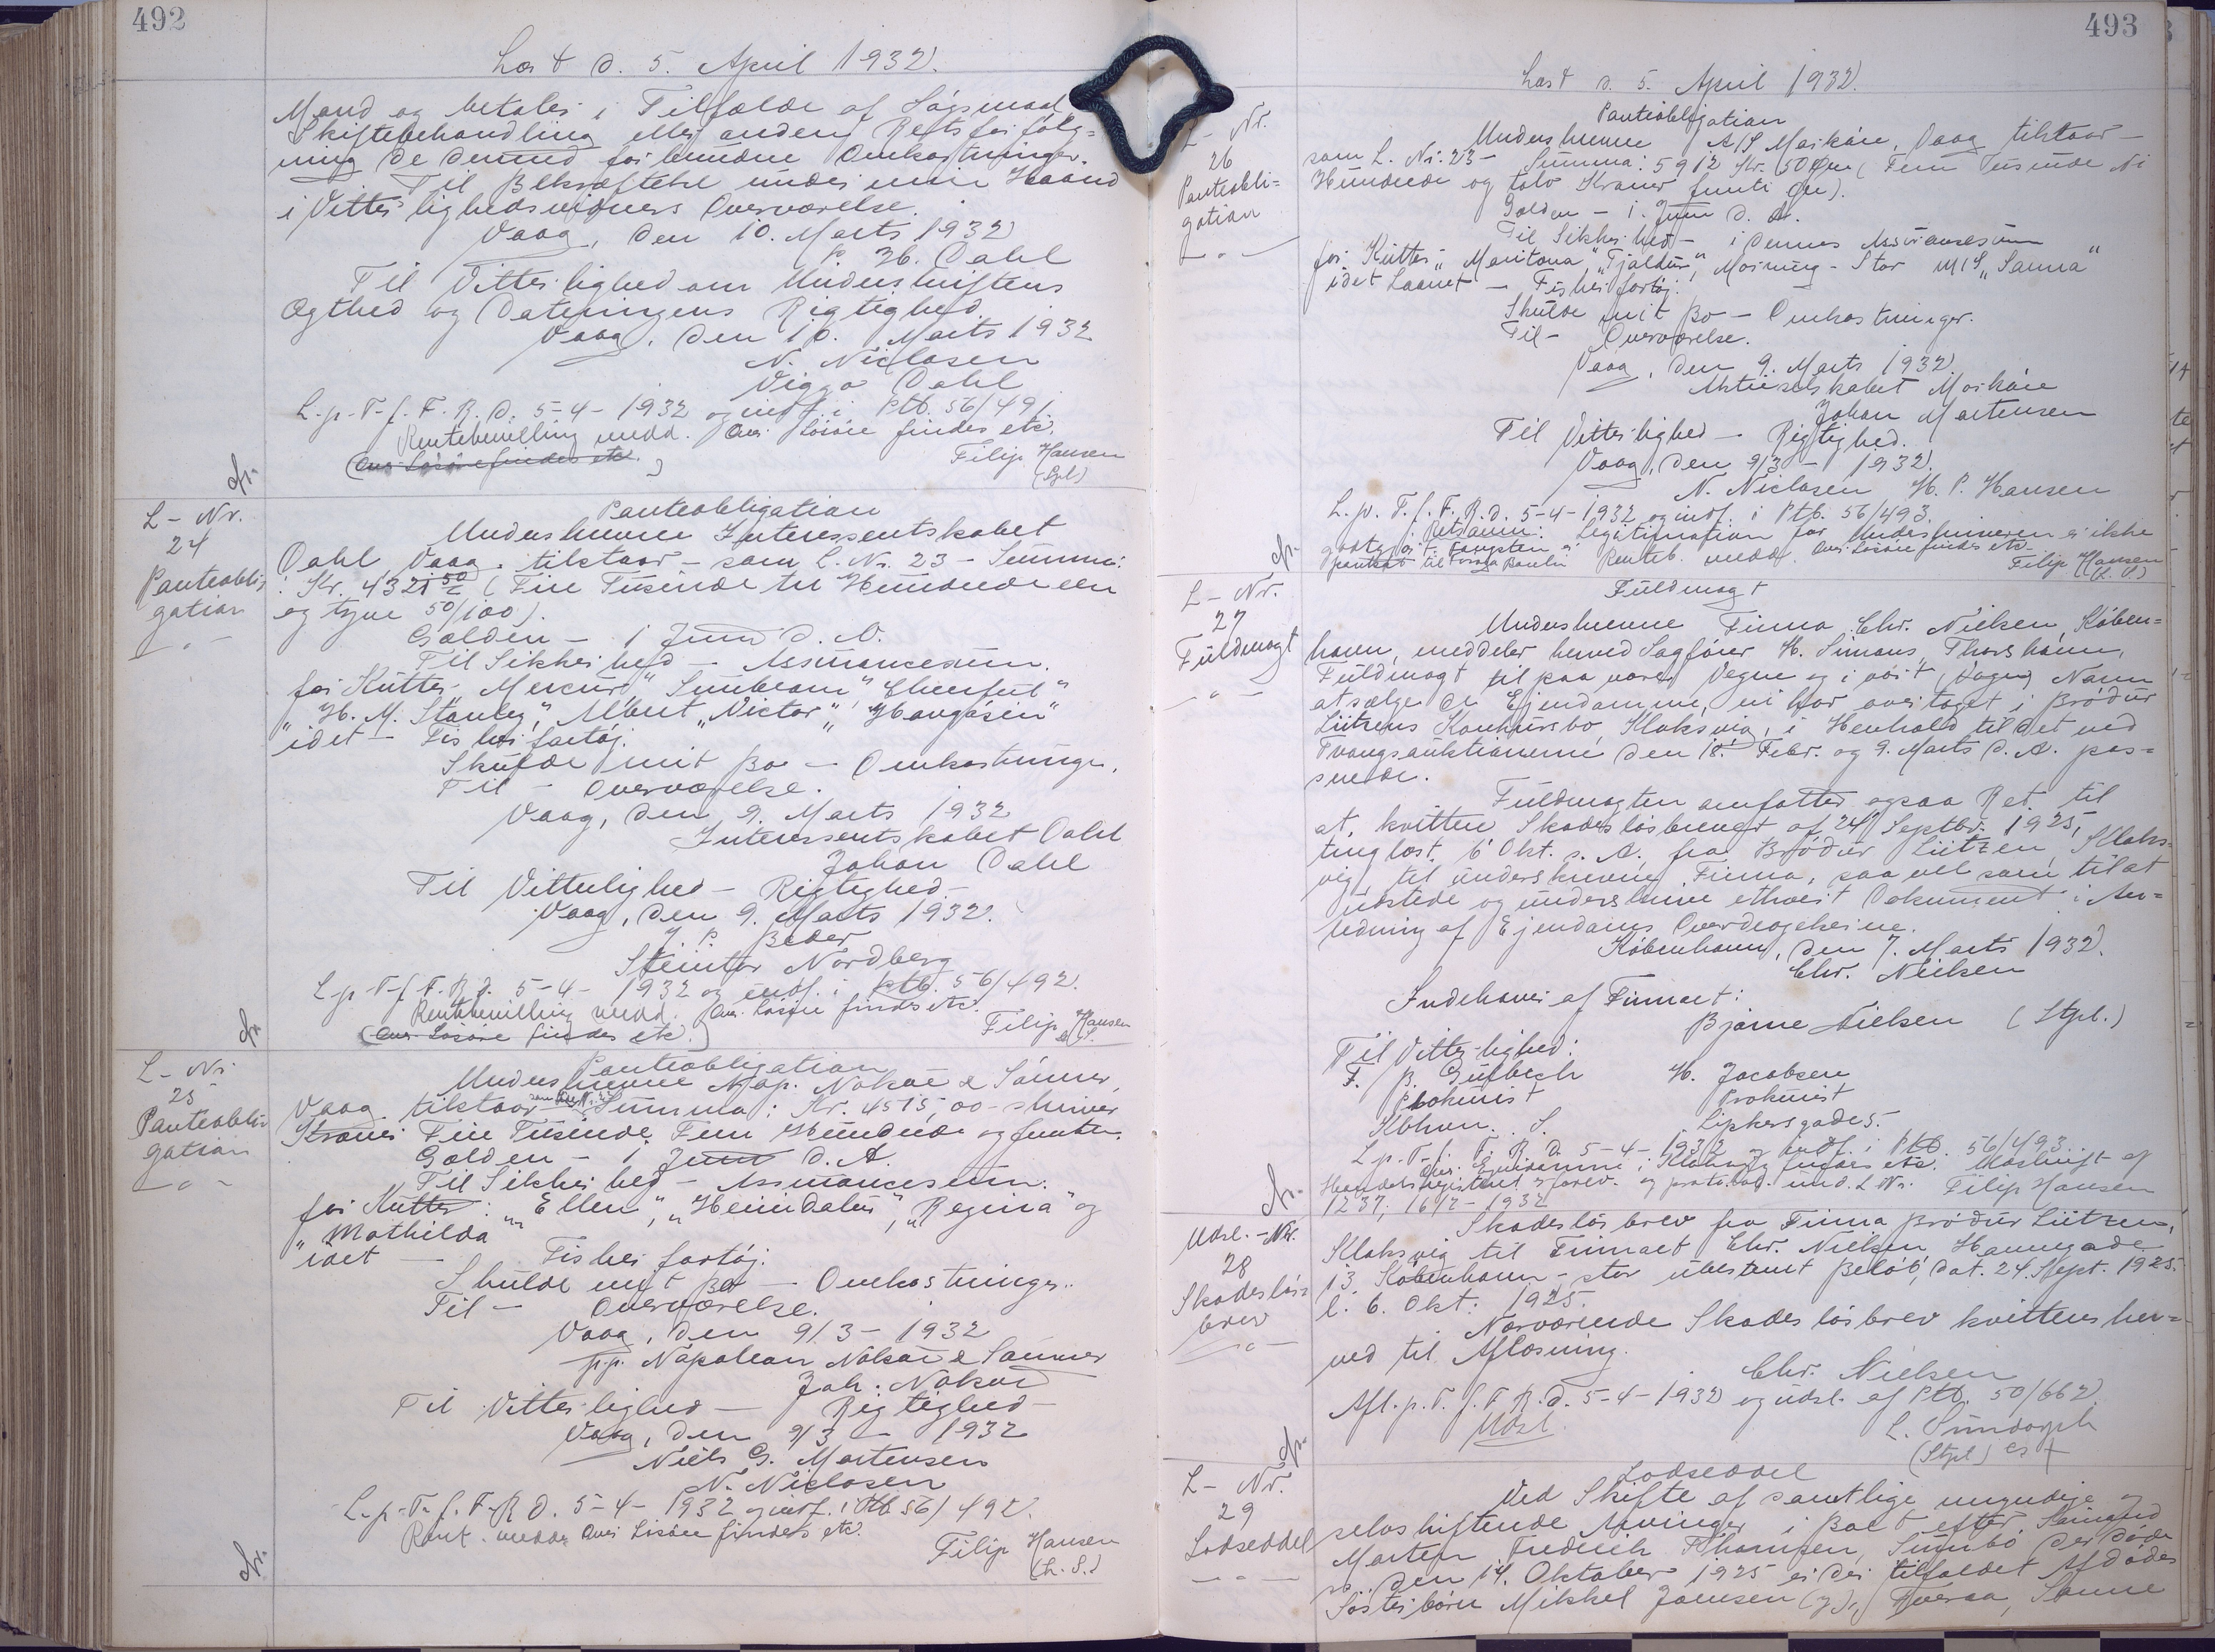 492
Læst d. 5. April 1932.
Mand og betaler i Tilfælde af Søgsmaal
Skiftebehandling eller anden Retsforfølg=
ning de dermed forbundne Omkostninger.
Til Bekræftelse under min Haand
i Vitterlighedsvidners Overværelse.
Vaag, den 10. Marts 1932
P. M. Dahl
Til Vitterlighed om Underskriftens
Ægthed og Dateringens Rigtighed
Vaag, den 10. Marts 1932
N. Niclasen
Viggo Dahl
L. p. T. f. F. R. d. 5-4-1932 og indf. i Ptb. 56/491.
Rentebevilling medd. Ang. Løsøre findes etc.
(Ang. Løsøre findes etc.)
Filip Hansen
(Stpl)
L-Nr.
24
Panteobli
gation
Panteobligation
Underskrevne Interessentskabet
Dahl, Vaag, tilstaar - som L. Nr. 23 - Summa:
: Kr. 4321 50 (Fire Tusinde tre Hundrede een
og tyve 50/100).
Gælden - 1 Juni d. A.
Til Sikkerhed - Assurancesum.
for Kutter "Mercur" "Sunbeam" "Cheerful"
"H. M. Stanley", "Albert" "Victor" "Haugåsin"
idet - Fiskerfartøj.
Skulde mit Bo - Omkostninger.
Til - Overværelse.
Vaag, den 9. Marts 1932
Interessentskabet Dahl
Johan Dahl
Til Vitterlighed - Rigtighed -
Vaag, den 9. Marts 1932.
J. P. Bæder
Steintor Nordberg
L. p. T. f. F. R. d. 5-4-1932 og indf. i Ptb. 56/492.
Rentebevilling medd. Ang. Løsøre findes etc.
(Ang. Løsøre findes etc.)
Filip Hansen
L-Nr.
25
Panteobli-
gation
Panteobligation
Underskrevne Nap. Nolsøe & Sønner,
Vaag tilstaar Summa: Kr. 4515,00 - skriver
Kroner Fire Tusinde Fem Hundrede og femten.
Gælden - 1 Juni d. A.
Til Sikkerhed - Assurancesum.
for Kutter: "Ellen", "Heimdalur", "Regina" og
"Mathilda"
idet - Fiskerfartøj.
Skulde mit Bo - Omkostninger.
Til - Overværelse.
Vaag, den 9/3-1932
p.p. Napoleon Nolsøe & Sønner
Joh. Nolsøe
Til Vitterlighed - Rigtighed -
Vaag, den 9/3 - 1932
Niels G. Mortensen
N. Niclasen
L. p. T. f. F. R. d. 5-4-1932 og indf. i Ptb. 56/492.
Rent. medd. Ang. Løsøre findes etc.
Filip Hansen
(L. S.)
493
Læst d. 5. April 1932.
L-Nr.
26
Panteobli=
gation
Panteobligation
Underskrevne A/S Morkåre, Vaag tilstaar -
som L. Nr. 23 - Summa: 5912 Kr. 50 Øre (Fem Tusinde Ni
Hundrede og tolv Kroner femti Øre).
Gælden - 1. Juni d. A.
Til Sikkerhed - i dennes Assurancesum
for Kutter "Maritana" "Tjaldur", Morning-Star M/S "Sanna"
idet Laanet - Fiskerfartøj.
Skulde mit Bo - Omkostninger.
Til - Overværelse.
Vaag, den 9. Marts 1932.
Aktieselskabet Morkåre
Johan Mortensen
Til Vitterlighed - Rigtighed.
Vaag, den 9/3 - 1932.
N. Niclasen H. P. Hansen
L. p. T. f. F. R. d. 5-4-1932 og indf. i Ptb. 56/493.
Retsanm: Legitimation for Underskriveren er ikke
godtgjort. Renteb. medd. Ang. Løsøre findes etc.
Filip Hansen
(L. S.)
L-Nr.
27
Fuldmagt
Fuldmagt
Underskrevne Firma Chr. Nielsen, Køben=
havn, meddeler herved Sagfører H. Simans, Thorshavn,
Fuldmagt til paa vore Vegne og i vort Navn
at sælge de Ejendomme, vi har overtaget i Brødur
Lützens Konkursbo, Klaksvig, i Henhold til det ved
Tvangsauktionerne den 18. Febr. og 9. Marts d. A. pas=
serede.
Fuldmagten omfatter ogsaa Ret til
at kvittere Skadesløsbrevet af 24 Septbr. 1925,
tinglæst 6 Okt. s. A. fra Brødur Lützen Klaks=
vig til underskrevne Firma, saa vel som til at
udstede og underskrive ethvert Dokument i An=
ledning af Ejendoms Overdragelserne.
København, den 7. Marts 1932.
Chr. Nielsen
Indehaver af Firmaet:
Bjarne Nielsen (Stpl.)
Til Vitterlighed:
F. B. Gufbech H. Jacobsen
Prokurist Prokurist
Kbhvn. S. Lipkesgade 5.
L. p. T. f. F. R. d. 5-4-1932 og indf. i Ptb. 56/493.
Ang. Ejendomme i Klaksvig findes etc. Udskrift af
Handelsregistret
1237, 16/2-1932 Filip Hansen
Udsl.-Nr.
28
Skadesløs=
brev
Skadesløsbrev fra Firma Brødur Lützen,
Klaksvig til Firmaet Chr. Nielsen, Havnegade
13 København - stor ubestemt Beløb, dat. 24. Sept. 1925.
l. 6. Okt. 1925.
Nærværende Skadesløsbrev kvitteres her=
ved til Aflæsning.
Chr. Nielsen
Afl. p. T. f. F. R. d. 5-4-1932 og udsl. af Ptb. 50/662.
Udsl.
L. Sundorph
(Stpl)
L-Nr.
29
Lodseddel
Lodseddel
Ved Skifte af samtlige myndige og
selvskiftende Arvinger i Boet efter
Morten Fredrik Thomsen, Sumbø der døde
den 14. Oktober 1925 er der tilfaldet Afdødes
Søsterbørn Mikkel Joensen Tveraa, Sanne